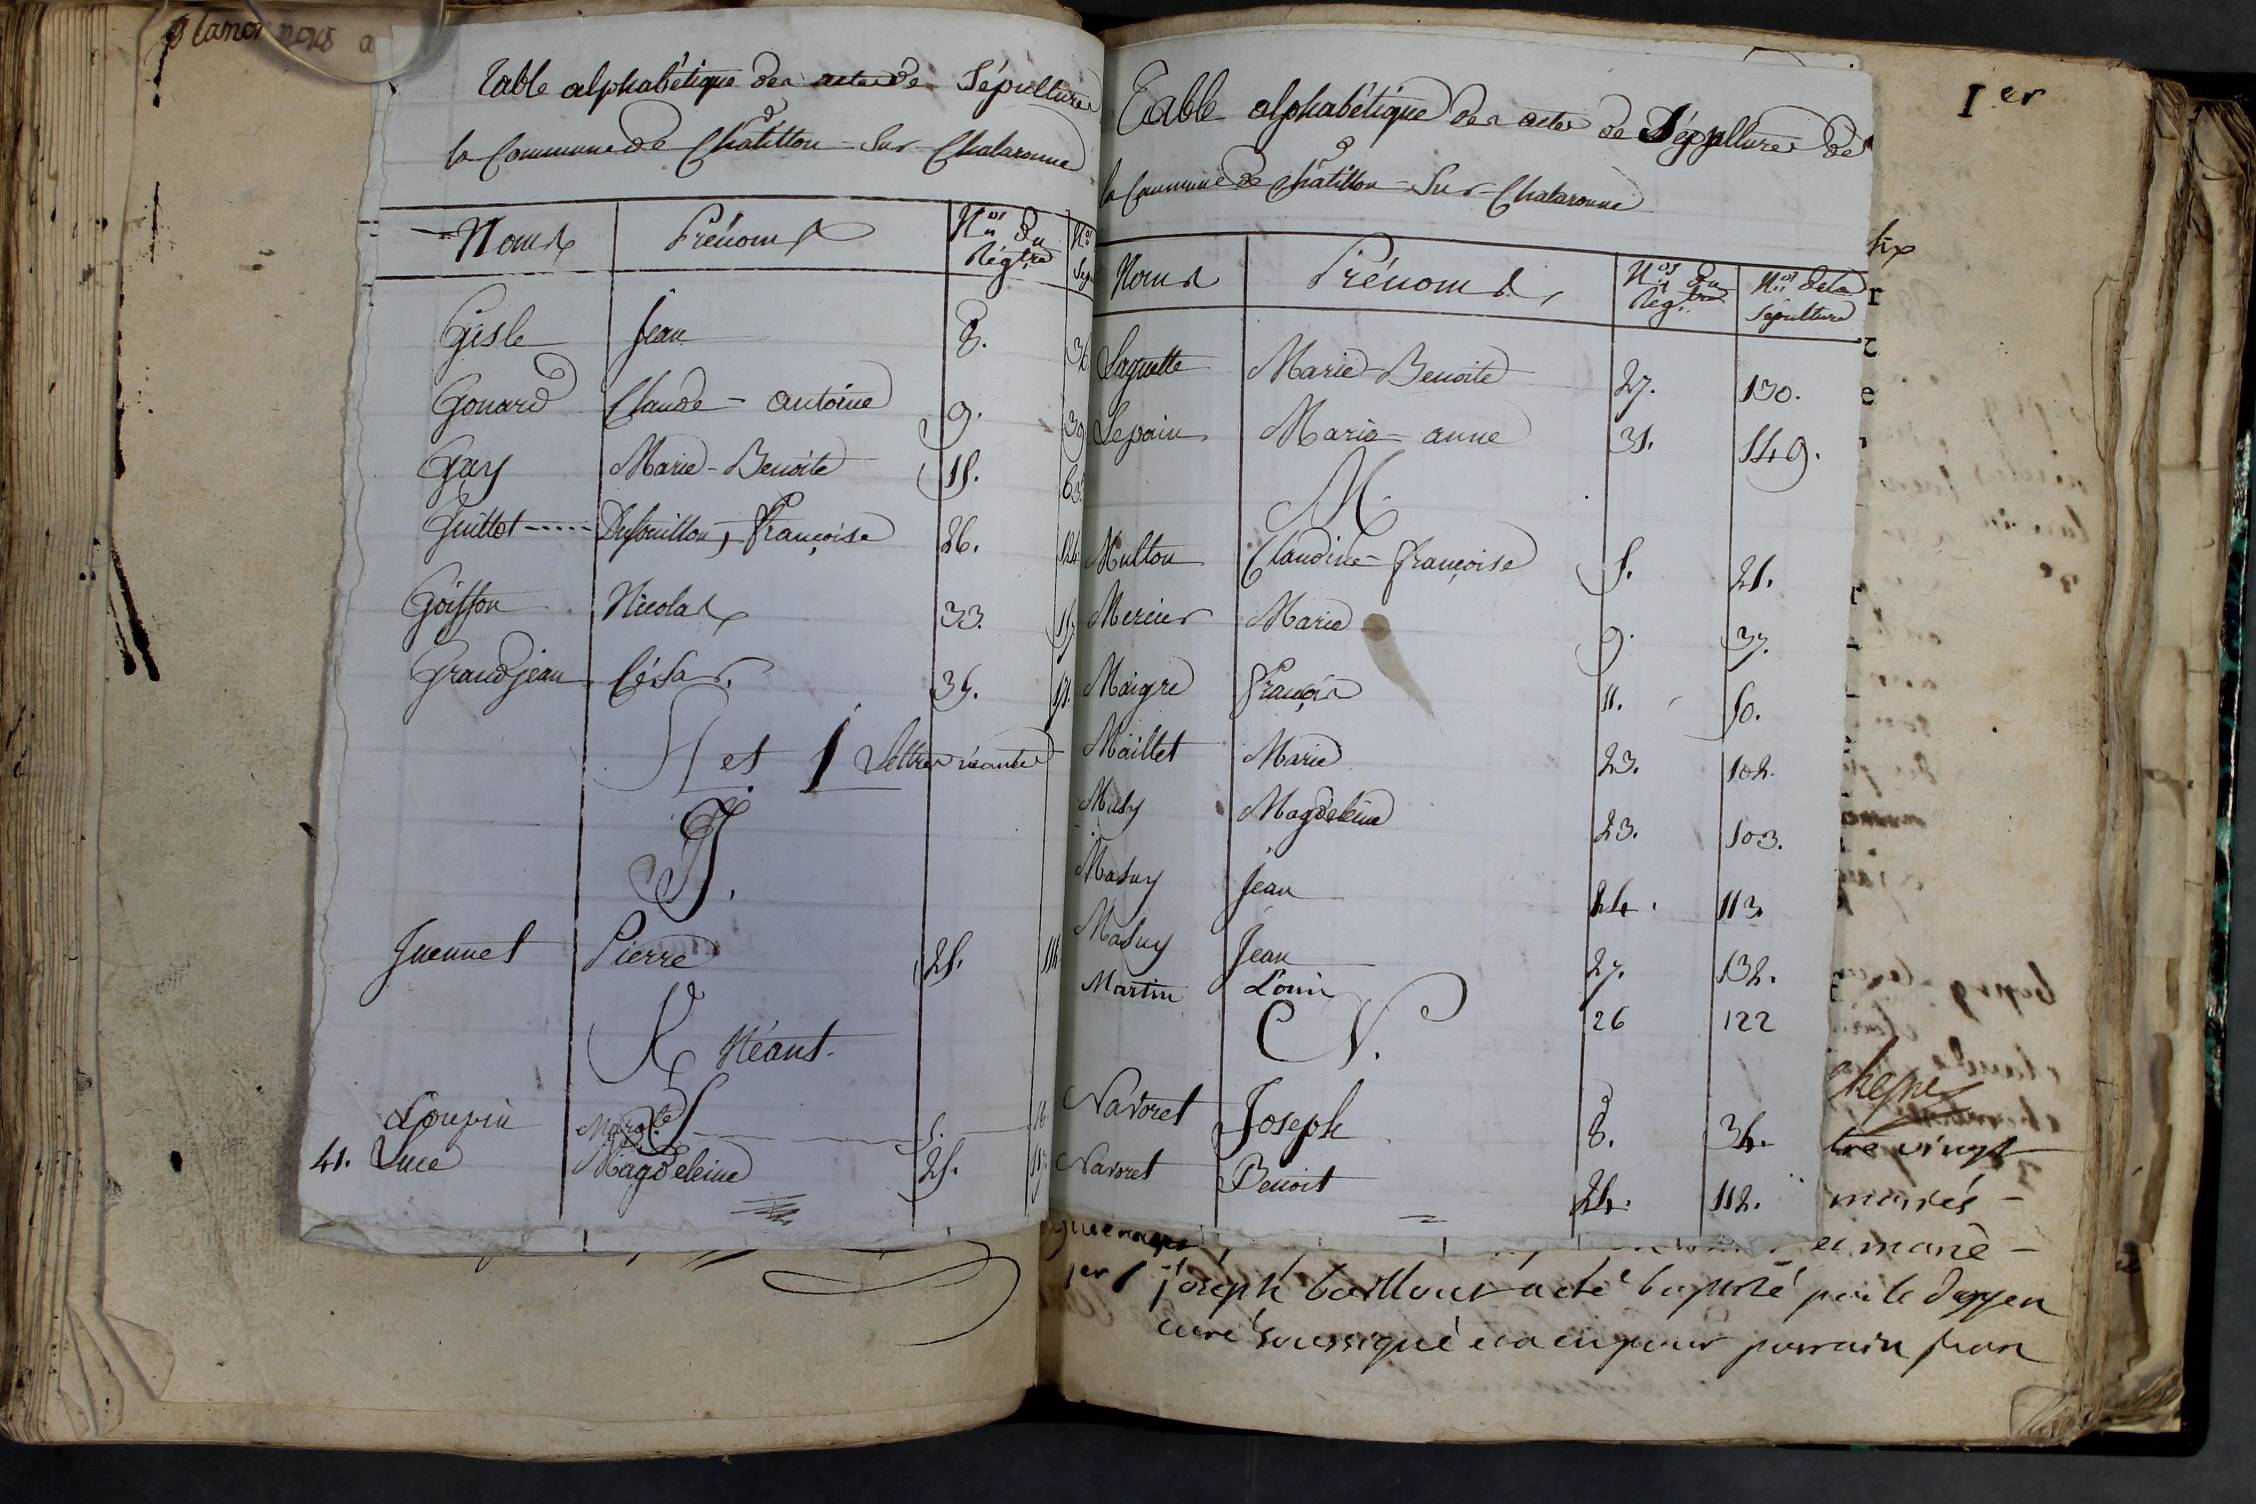 Table alphabétique des actes de Sépultures
la Commune de Châtillon-Sur-Chalaronne
Noms Prénoms Nos du Régtre Nos
Gisle Jean 8. 36
Gonard Claude-antoine 9. 39
Gay Marie-Benoite 15. 63
Guillot ..... Dufouillou, Françoise 26. 124
Goiffon Nicolas 33. 157
Grandjean César. 35. 171
H et I Lettres néantes
J.
Juennet Pierre 25. 116
K Néant.
L
Loupin Margte 5. 16
41. Luce Magdeleine 25. 117
Table alphabétique des actes de Sépultures de
la Commune de Châtillon-Sur-Chalaronne
Noms Prénoms, Nos du Regtre Nos de la Sépulture
Laguette Marie-Benoite 27. 130.
Lepain Marie-anne 31. 149.
M.
Multon Claudine-françoise 5. 21.
Mercier Marie 9. 37.
Maigre François 11. 50.
Maillet Marie 23. 102.
Magdeleine 23. 103.
Masuy Jean 24. 113.
Masuy Jean 27. 132.
Martin Louis 26 122
N.
Navoret Joseph 8. 34.
Navoret Benoit 24. 112.
Ier
tre vingt
mariés -
et marie -
joseph baillout a été baptisé par le doyen
curé soussigné et a eu pour parrain fran